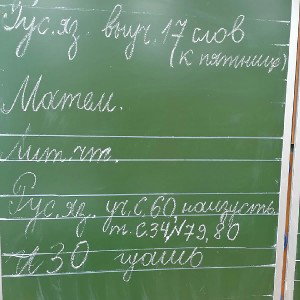 Рус.яз. выуч. 17 слов
(к пятнице)
Матем.
Лит.чт.
Рус.яз. уч.С 60, наизусть
т.С.34, №79, 80
ИЗО гуашь